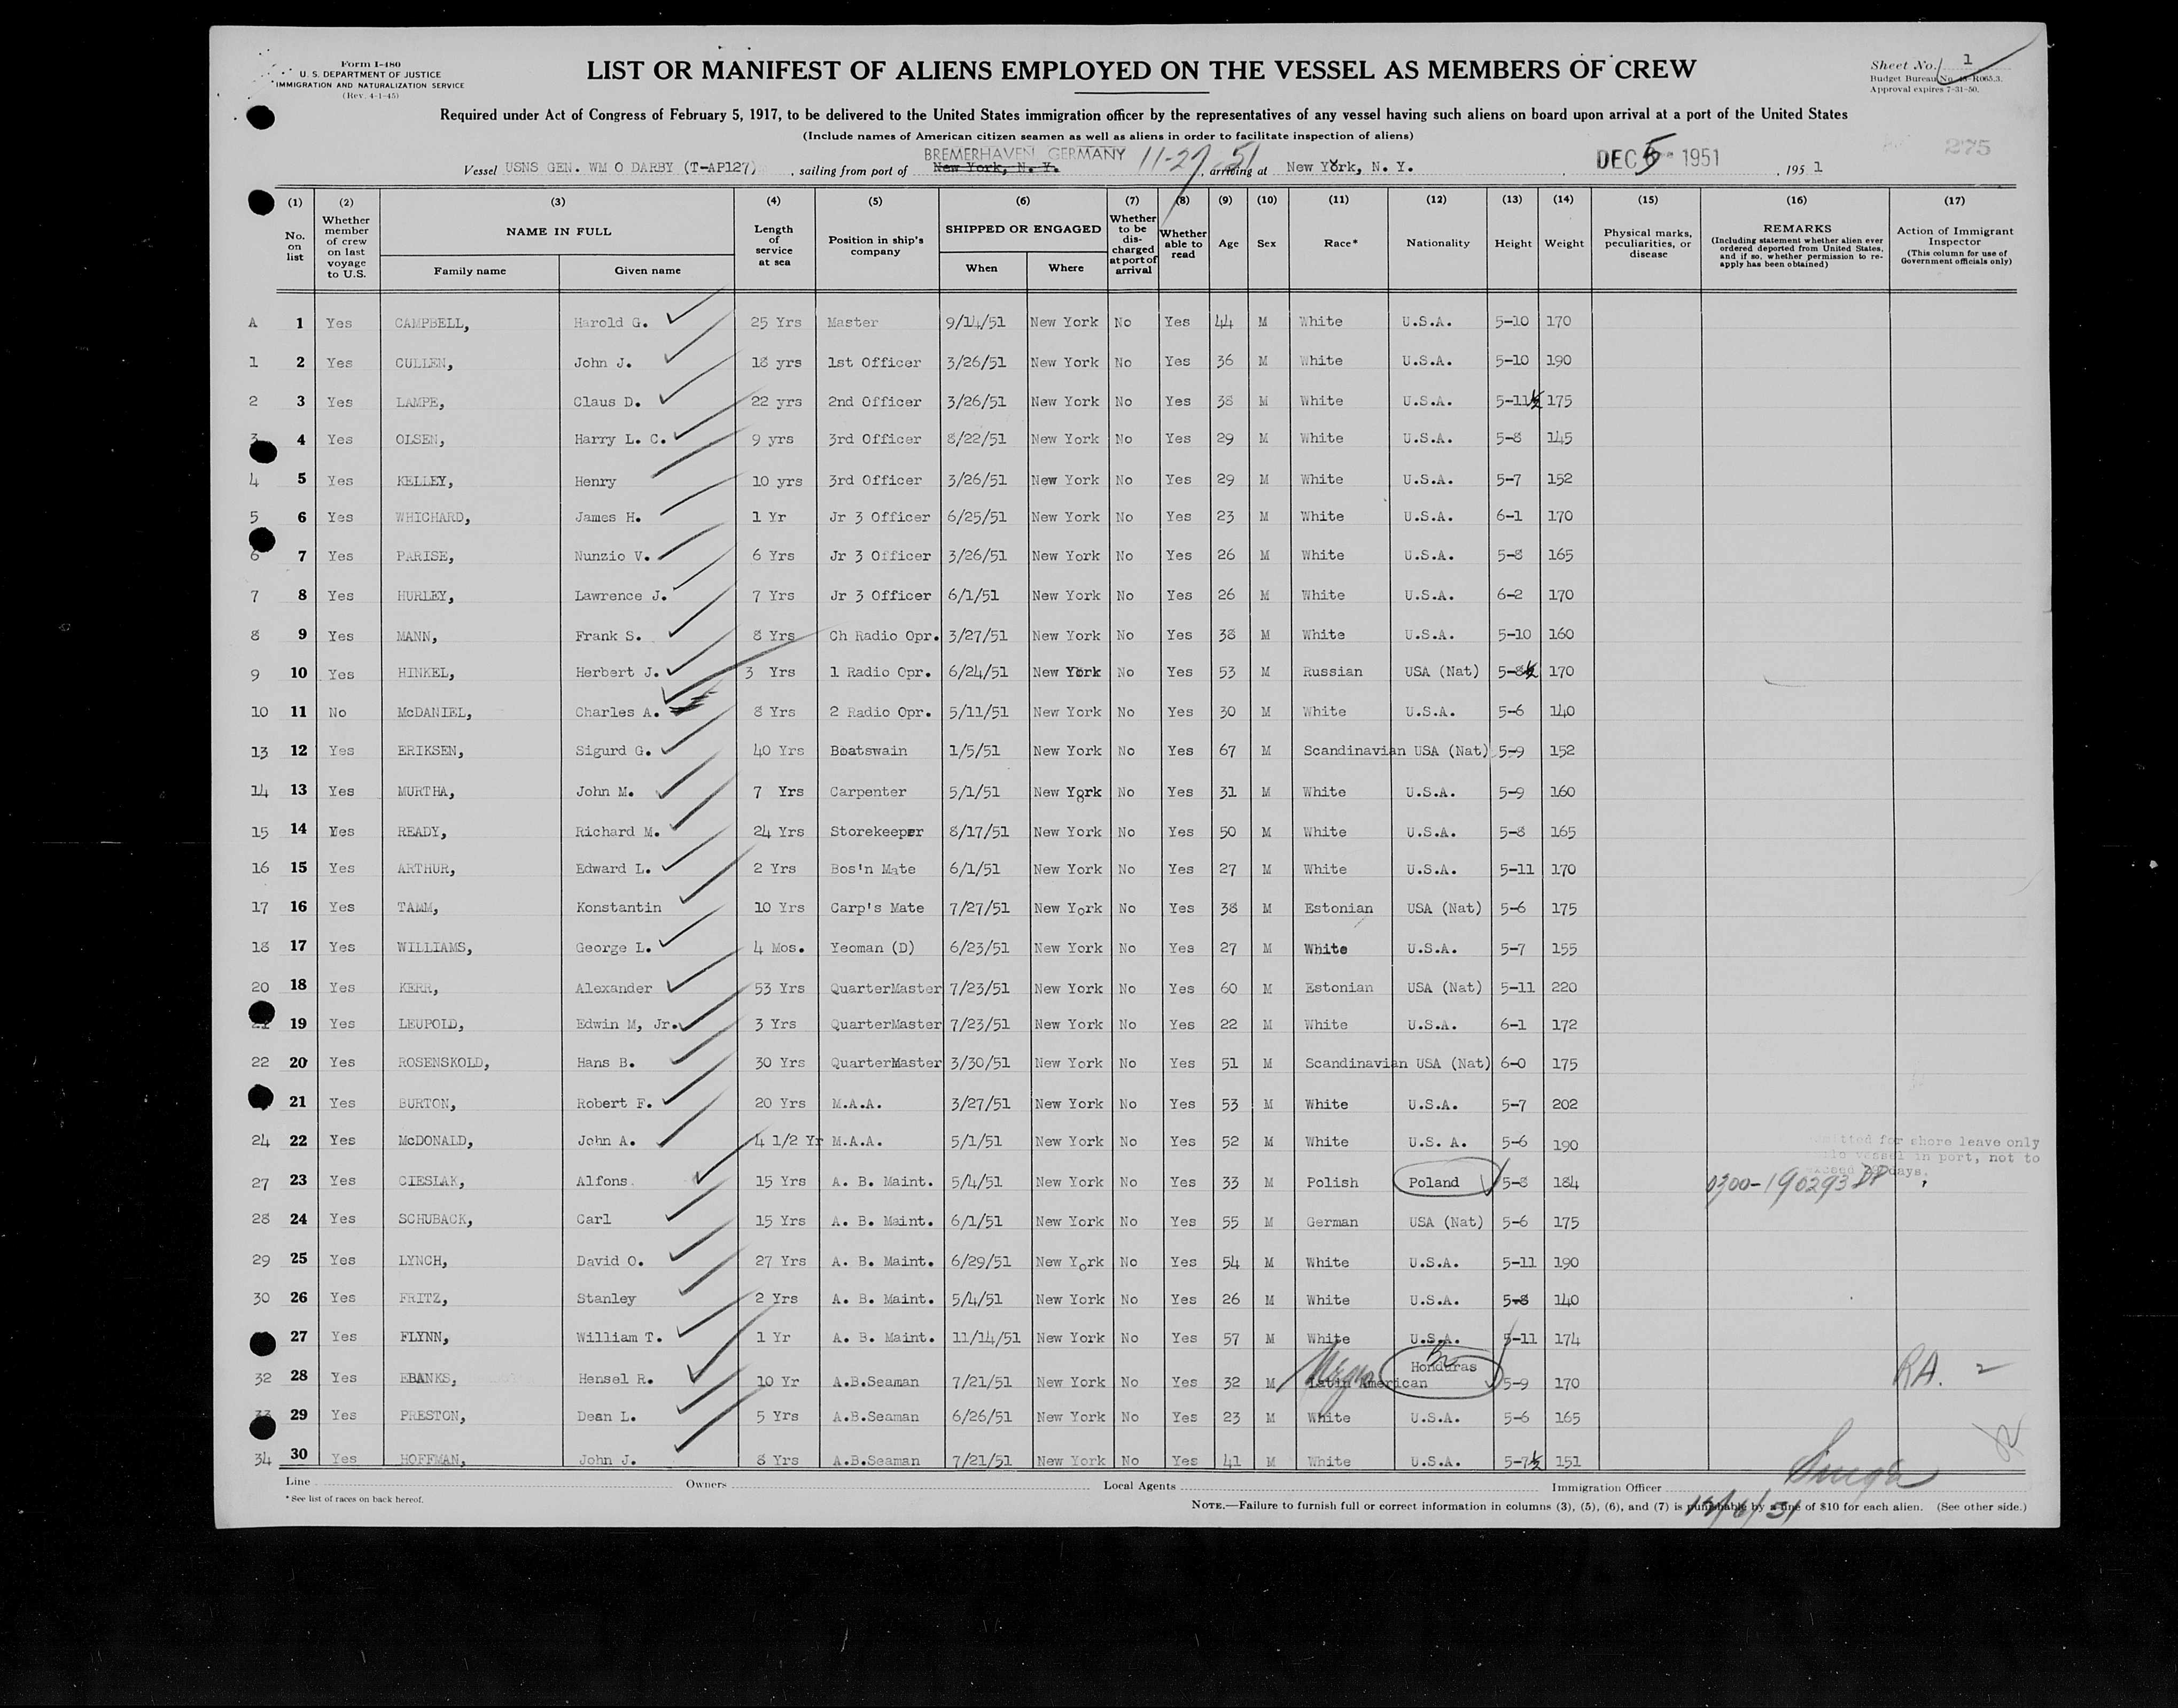 Form I-480
U. S. DEPARTMENT OF JUSTICE
IMMIGRATION AND NATURALIZATION SERVICE
(Rev. 4-1-45)
LIST OR MANIFEST OF ALIENS EMPLOYED ON THE VESSEL AS MEMBERS OF CREW
Sheet No. 1
Budget Bureau No. 43-R065.3.
Approval expires 7-31-50.
Required under Act of Congress of February 5, 1917, to be delivered to the United States immigration officer by the representatives of any vessel having such aliens on board upon arrival at a port of the United States
(Include names of American citizen seamen as well as aliens in order to facilitate inspection of aliens)
275
BREMERHAVEN GERMANY 11-27, 51
Vessel USNS GEN. WM O DARBY (T-AP127), sailing from port of New York, N. Y., arriving at New York, N. Y. DEC 5 1951, 1951
(1) (2) (3) (4) (5) (6) (7) (8) (9) (10) (11) (12) (13) (14) (15) (16) (17)
No. on list Whether member of crew on last voyage to U.S. NAME IN FULL Family name Given name Length of service at sea Position in ship's company SHIPPED OR ENGAGED When Where Whether to be discharged at port of arrival Whether able to read Age Sex Race* Nationality Height Weight Physical marks, peculiarities, or disease REMARKS (Including statement whether alien ever ordered deported from United States, and if so, whether permission to re-apply has been obtained) Action of Immigrant Inspector (This column for use of Government officials only)
A 1 Yes CAMPBELL, Harold G. 25 Yrs Master 9/14/51 New York No Yes 44 M White U.S.A. 5-10 170
1 2 Yes CULLEN, John J. 18 yrs 1st Officer 3/26/51 New York No Yes 36 M White U.S.A. 5-10 190
2 3 Yes LAMPE, Claus D. 22 yrs 2nd Officer 3/26/51 New York No Yes 38 M White U.S.A. 5-11½ 175
3 4 Yes OLSEN, Harry L. C. 9 yrs 3rd Officer 8/22/51 New York No Yes 29 M White U.S.A. 5-8 145
4 5 Yes KELLEY, Henry 10 yrs 3rd Officer 3/26/51 New York No Yes 29 M White U.S.A. 5-7 152
5 6 Yes WHICHARD, James H. 1 Yr Jr 3 Officer 6/25/51 New York No Yes 23 M White U.S.A. 6-1 170
6 7 Yes PARISE, Nunzio V. 6 Yrs Jr 3 Officer 3/26/51 New York No Yes 26 M White U.S.A. 5-8 165
7 8 Yes HURLEY, Lawrence J. 7 Yrs Jr 3 Officer 6/1/51 New York No Yes 26 M White U.S.A. 6-2 170
8 9 Yes MANN, Frank S. 8 Yrs Ch Radio Opr. 3/27/51 New York No Yes 38 M White U.S.A. 5-10 160
9 10 Yes HINKEL, Herbert J. 3 Yrs 1 Radio Opr. 6/24/51 New York No Yes 53 M Russian USA (Nat) 5-8½ 170
10 11 No McDANIEL, Charles A. 8 Yrs 2 Radio Opr. 5/11/51 New York No Yes 30 M White U.S.A. 5-6 140
13 12 Yes ERIKSEN, Sigurd G. 40 Yrs Boatswain 1/5/51 New York No Yes 67 M Scandinavian USA (Nat) 5-9 152
14 13 Yes MURTHA, John M. 7 Yrs Carpenter 5/1/51 New York No Yes 31 M White U.S.A. 5-9 160
15 14 Yes READY, Richard M. 24 Yrs Storekeeper 8/17/51 New York No Yes 50 M White U.S.A. 5-8 165
16 15 Yes ARTHUR, Edward L. 2 Yrs Bos'n Mate 6/1/51 New York No Yes 27 M White U.S.A. 5-11 170
17 16 Yes TAMM, Konstantin 10 Yrs Carp's Mate 7/27/51 New York No Yes 38 M Estonian USA (Nat) 5-6 175
18 17 Yes WILLIAMS, George L. 4 Mos. Yeoman (D) 6/23/51 New York No Yes 27 M White U.S.A. 5-7 155
20 18 Yes KERR, Alexander 53 Yrs QuarterMaster 7/23/51 New York No Yes 60 M Estonian USA (Nat) 5-11 220
21 19 Yes LEUPOLD, Edwin M, Jr. 3 Yrs QuarterMaster 7/23/51 New York No Yes 22 M White U.S.A. 6-1 172
22 20 Yes ROSENSKOLD, Hans B. 30 Yrs QuarterMaster 3/30/51 New York No Yes 51 M Scandinavian USA (Nat) 6-0 175
21 Yes BURTON, Robert F. 20 Yrs M.A.A. 3/27/51 New York No Yes 53 M White U.S.A. 5-7 202
24 22 Yes McDONALD, John A. 4 1/2 Yr M.A.A. 5/1/51 New York No Yes 52 M White U.S. A. 5-6 190
for shore leave only
vessel in port, not to
days.
27 23 Yes CIESLAK, Alfons 15 Yrs A. B. Maint. 5/4/51 New York No Yes 33 M Polish Poland 5-8 184 0300-190293 DP
28 24 Yes SCHUBACK, Carl 15 Yrs A. B. Maint. 6/1/51 New York No Yes 55 M German USA (Nat) 5-6 175
29 25 Yes LYNCH, David O. 27 Yrs A. B. Maint. 6/29/51 New York No Yes 54 M White U.S.A. 5-11 190
30 26 Yes FRITZ, Stanley 2 Yrs A. B. Maint. 5/4/51 New York No Yes 26 M White U.S.A. 5-8 140
27 Yes FLYNN, William T. 1 Yr A. B. Maint. 11/14/51 New York No Yes 57 M White U.S.A. 5-11 174
32 28 Yes EBANKS, Hensel R. 10 Yr A.B.Seaman 7/21/51 New York No Yes 32 M Negro Latin American Br Honduras 5-9 170 RA. 2
33 29 Yes PRESTON, Dean L. 5 Yrs A.B.Seaman 6/26/51 New York No Yes 23 M White U.S.A. 5-6 165
34 30 Yes HOFFMAN, John J. 8 Yrs A.B.Seaman 7/21/51 New York No Yes 41 M White U.S.A. 5-7½ 151
Line Owners Local Agents Immigration Officer
* See list of races on back hereof.
12/6/51
NOTE.—Failure to furnish full or correct information in columns (3), (5), (6), and (7) is punishable by a fine of $10 for each alien. (See other side.)